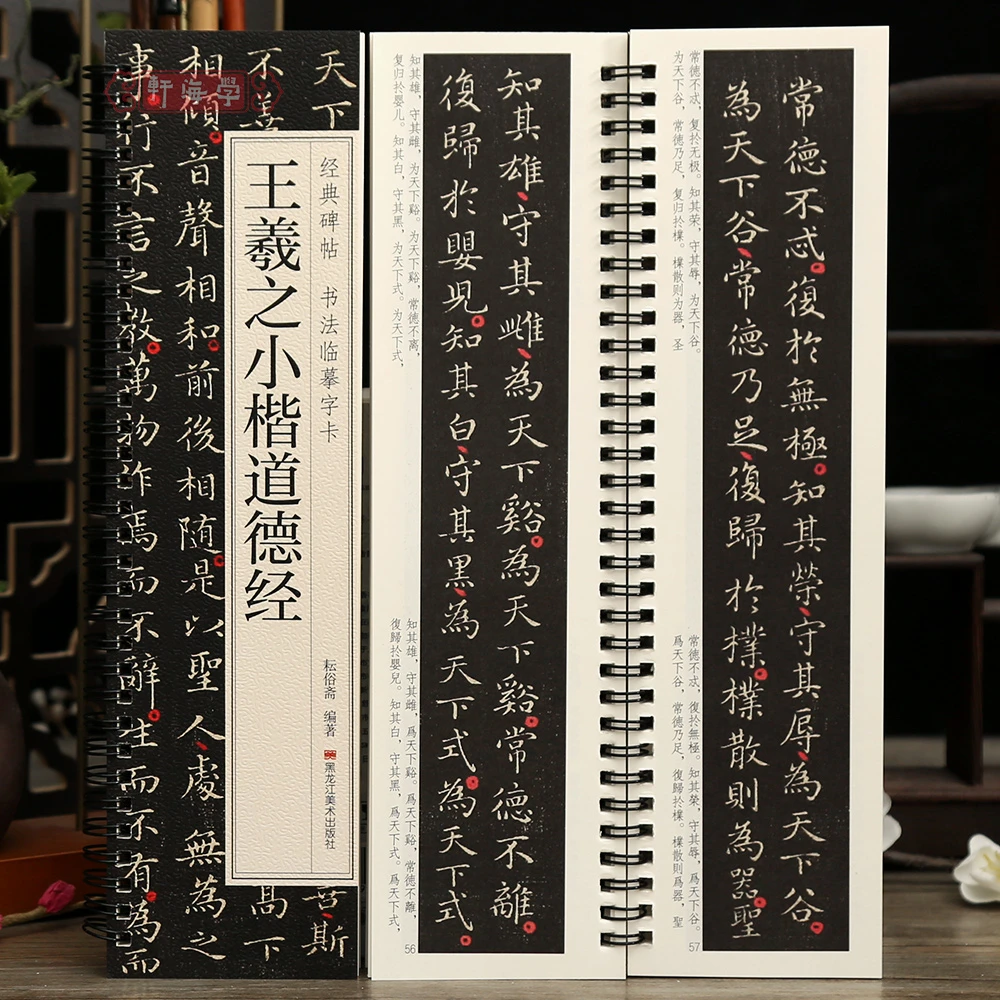 學海軒
经典碑帖 书法临摹字卡
王羲之小楷道德经
耘俗斋 编著
黑龙江美术出版社
天下
善斯
不善
高下
相傾音聲相和前後相隨是以聖人處無為之
事行不言之教萬物作焉而不辭生而不有為而
知其雄，守其雌，为天下谿。为天下谿，常德不离，
复归於婴儿。知其白，守其黑，为天下式。为天下式，
知其雄守其雌為天下谿為天下谿常德不離
復歸於嬰児知其白守其黑為天下式為天下式
知其雄，守其雌，爲天下谿。爲天下谿，常德不離，
復歸於嬰兒。知其白，守其黑，爲天下式。爲天下式，
56
常德不忒，复於无极。知其荣，守其辱，为天下谷。
为天下谷，常德乃足，复归於樸。樸散则为器，圣
常德不忒復於無極知其榮守其辱為天下谷
為天下谷常德乃足復歸於樸樸散則為器聖
常德不忒，復於無極。知其榮，守其辱，爲天下谷。
爲天下谷，常德乃足，復歸於樸。樸散則爲器，聖
57